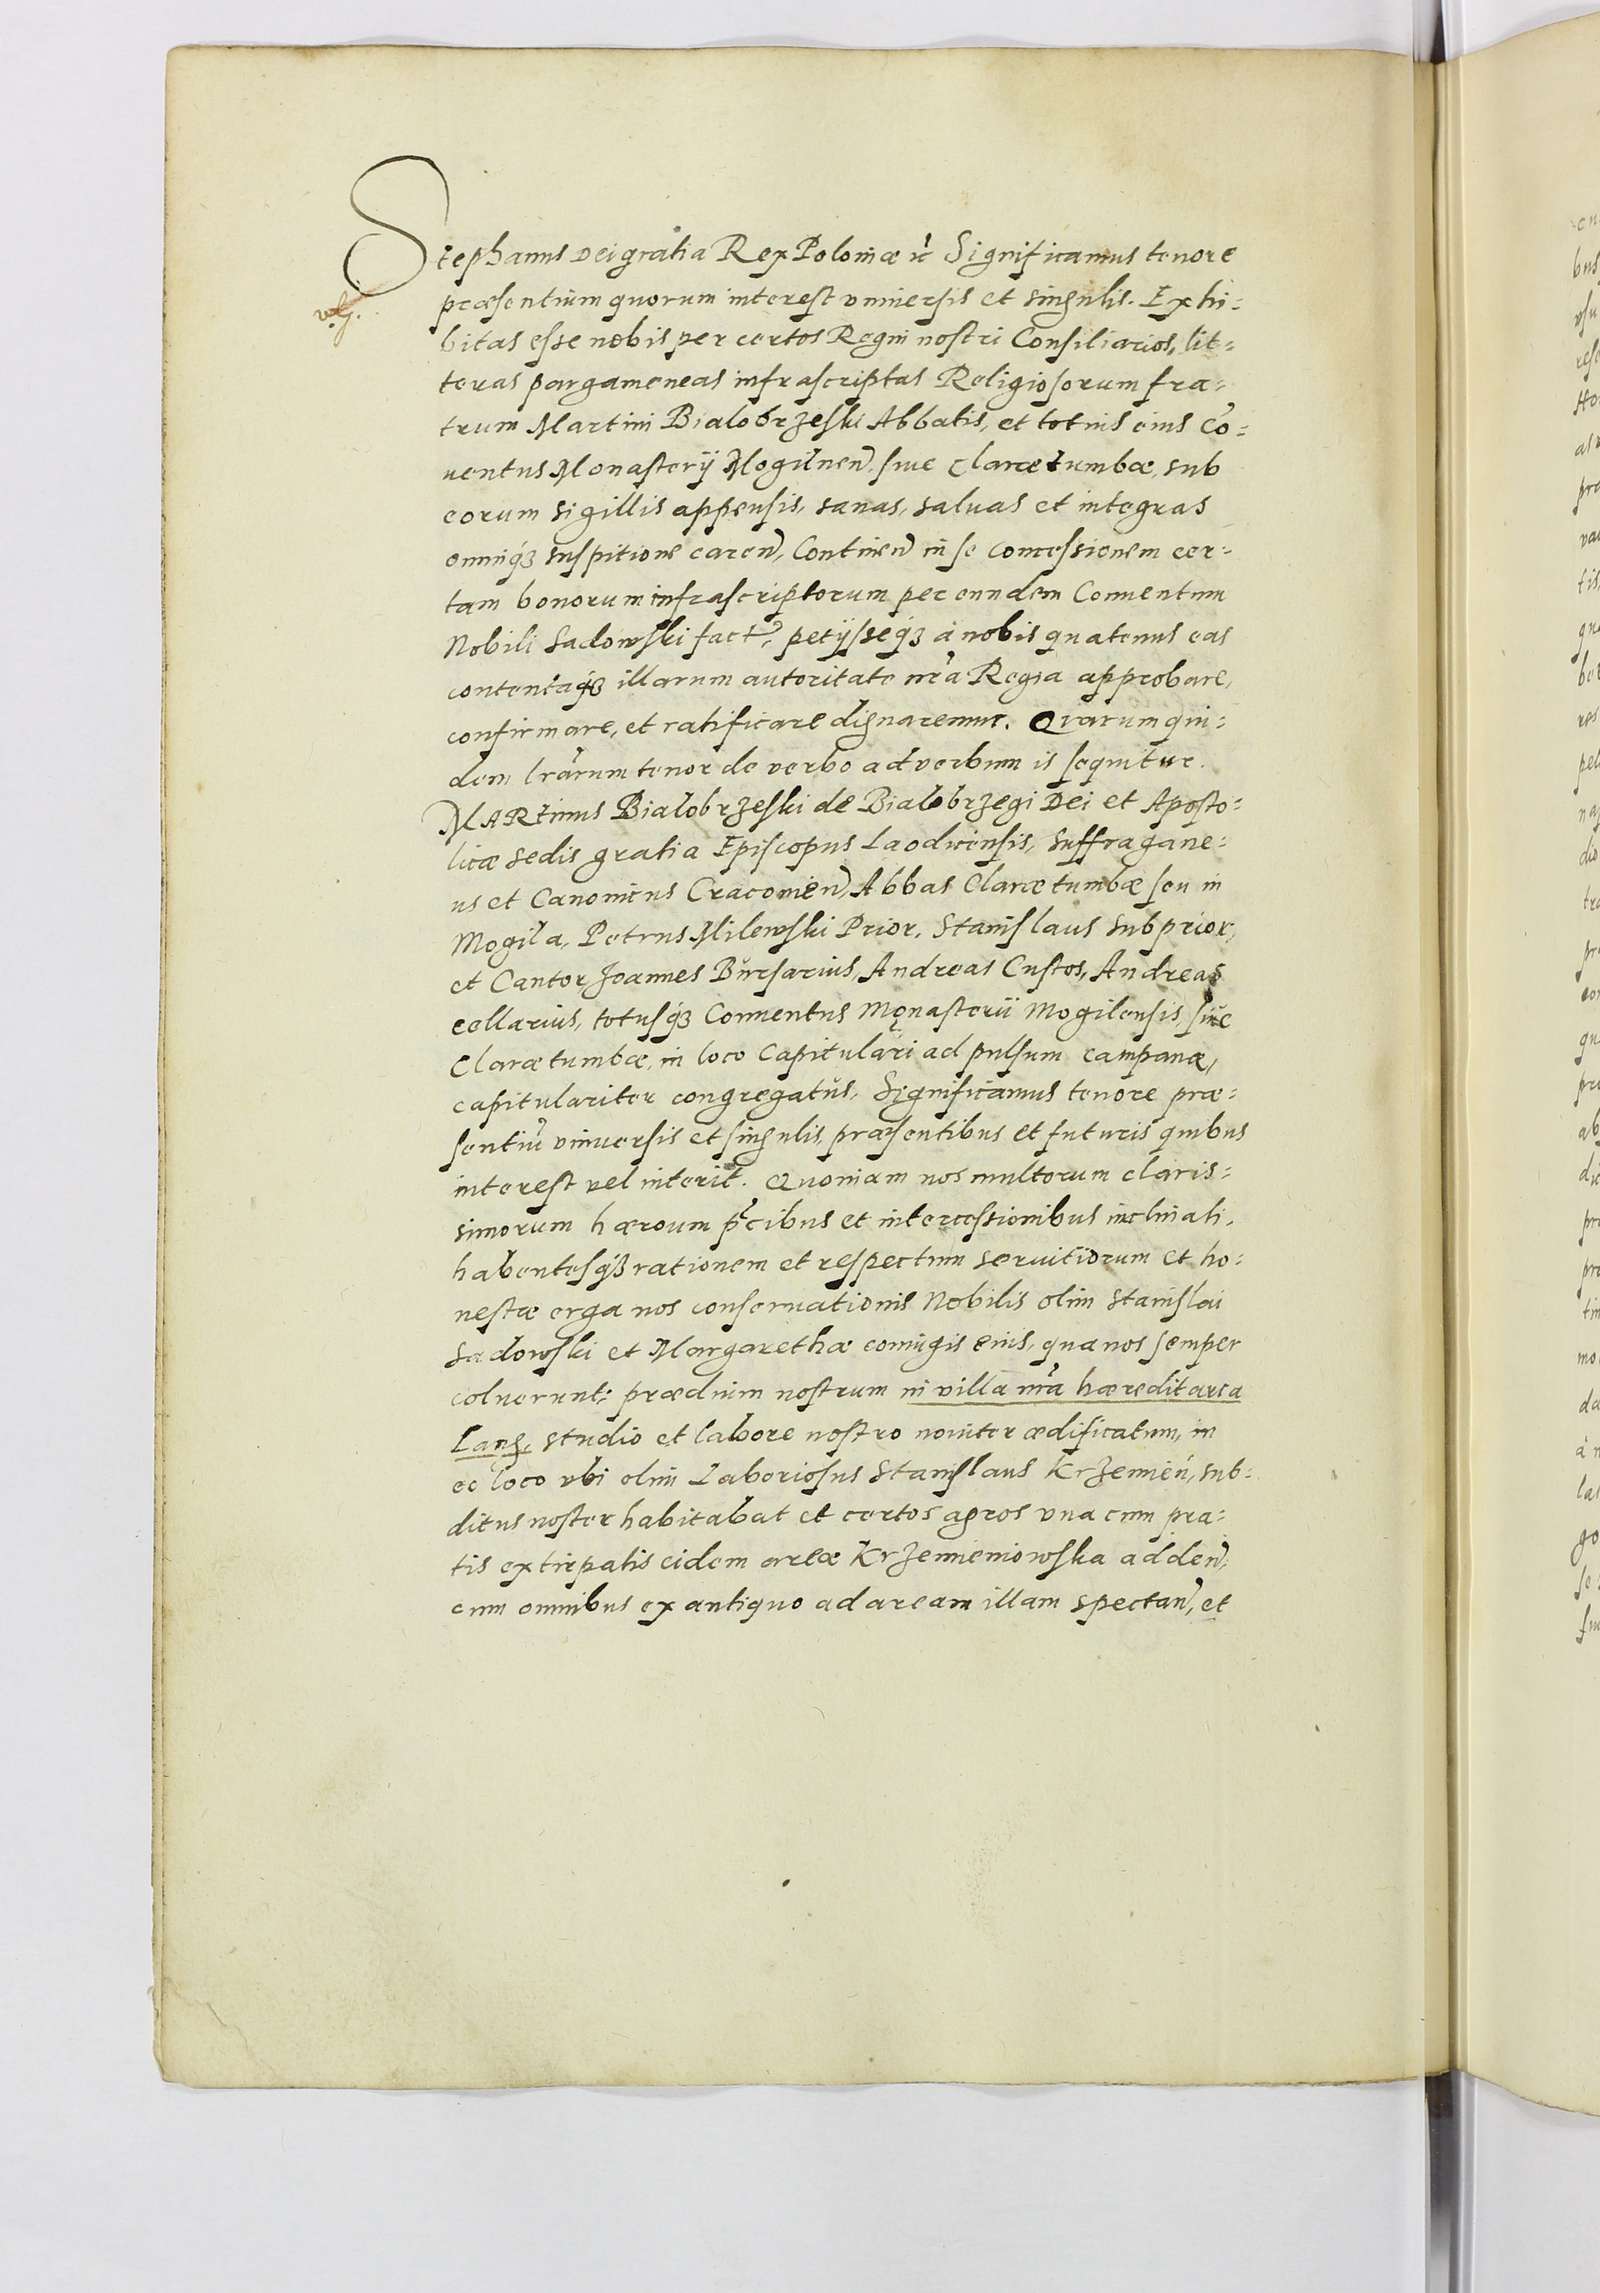 Stephanus Dei gratia Rex Poloniæ ꝛc̃ Significamus tenore
præsentium quorum interest vniuersis et singulis. Exhi-
bitas esse nobis per certos Regni nostri Consiliarios, lit-
teras pargameneas infrascriptas Religiosorum fra-
trum Martini Bialobrzeski Abbatis, et totius eius Cõ-
uentus Monasterij Mogilneñ siue Claræ tumbæ, sub
eorum sigillis appensis, sanas, saluas et integras
omniq́ꝫ suspitione careñ, Contineñ in se concessionem cer-
tam bonorum infrascriptorum per eundem Conuentum
Nobili Sadowski fact̃, petijsseq́ꝫ à nobis quatenus eas
contentaq́ꝫ illarum autoritate nr̃a Regia approbare,
confirmare, et ratificare dignaremur. Quarum qui-
dem lr̃arum tenor de verbo ad verbum is sequitur.
MARtinus Bialobrzeski de Bialobrzegi Dei et Aposto-
licæ sedis gratia Episcopus Laodicensis, suffragane-
us et Canonicus Cracouieñ, Abbas Claræ tumbæ seu in
Mogila, Petrus Milewski Prior, Stanislaus subprior,
et Cantor Joannes Bursarius, Andreas Custos, Andreas
cellarius, totusq́ꝫ Conuentus Monasterii Mogilensis, siue
Claræ tumbæ, in loco Capitulari ad pulsum campanæ,
capitulariter congregatus, Significamus tenore præ-
sentiũ vniuersis et singulis, præsentibus et futuris quibus
interest vel interit. Quoniam nos multorum claris-
simorum hæroum p̃cibus et intercessionibus inclinati,
habentesq́ꝫ rationem et respectum seruitiorum et ho-
nestæ erga nos conseruationis Nobilis olim Stanislai
Sadowski et Margarethæ coniugis eius, qua nos semper
coluerunt; prædium nostrum in villa nr̃a hæreditaria
Lang, studio et labore nostro nouiter ædificatum, in
eo loco vbi olim Laboriosus Stanislaus Krzemień, sub-
ditus noster habitabat et certos agros vna cum pra-
tis extirpatis eidem areæ Krzemieniowska addeñ,
cum omnibus ex antiquo ad aream illam spectañ, et